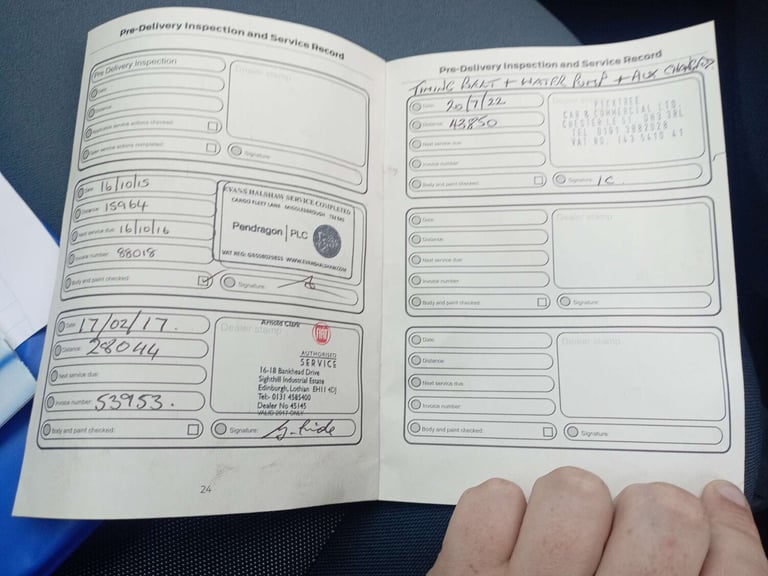 Pre-Delivery Inspection and Service Record
Pre Delivery Inspection
Dealer stamp
Date:
Distance:
service actions checked:
service actions completed:
Signature:
Date: 16/10/15
Distance: 15964
Next service due: 16/10/16
Invoice number: 88018
Body and paint checked:
EVANS HALSHAW SERVICE COMPLETED
CARGO FLEET LANE MIDDLESBROUGH
Pendragon PLC
VAT REG: WWW.EVANSHALSHAW.COM
Signature:
Date: 17/02/17.
Distance: 28044
Next service due:
Invoice number: 53953.
Body and paint checked:
Dealer stamp
Arnold Clark
FIAT
AUTHORISED
SERVICE
16-18 Bankhead Drive
Sighthill Industrial Estate
Edinburgh, Lothian EH11 4DJ
Tel:- 0131 4585400
Dealer No 45145
VALID 2017 ONLY
Signature:
24
Pre-Delivery Inspection and Service Record
TIMING BELT + WATER PUMP + AUX CHANGED
Date: 20/7/22
Distance: 43850
Next service due:
Invoice number:
Body and paint checked:
PICKTREE
CAR & COMMERCIAL LTD.
CHESTER LE ST. DH3 3RL
TEL 0191 3882028
VAT NO.
Signature:
Date:
Distance:
Next service due:
Invoice number:
Body and paint checked:
Dealer stamp
Signature:
Date:
Distance:
Next service due:
Invoice number:
Body and paint checked:
Dealer stamp
Signature: